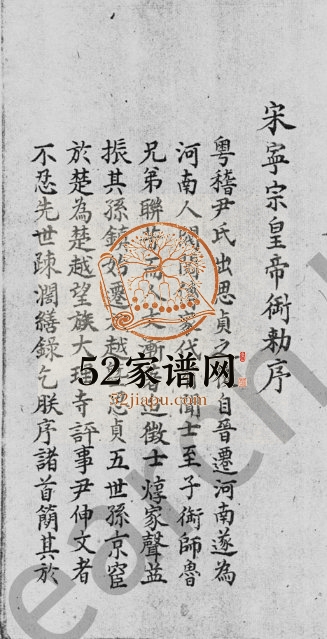 宋寧宗皇帝御勅序
粤稽尹氏出思貞之自晉遷河南遂為
河南人閥閱傳家代聞士至子術師魯
兄弟聯芳而人文漸迨徵士焞家聲益
振其孫鎮始遷越思貞五世孫京宦
於楚為楚越望族大理寺評事尹伸文者
不忍先世踈濶繕錄乞朕序諸首簡其於
52家谱网
52jiapu.com
earch